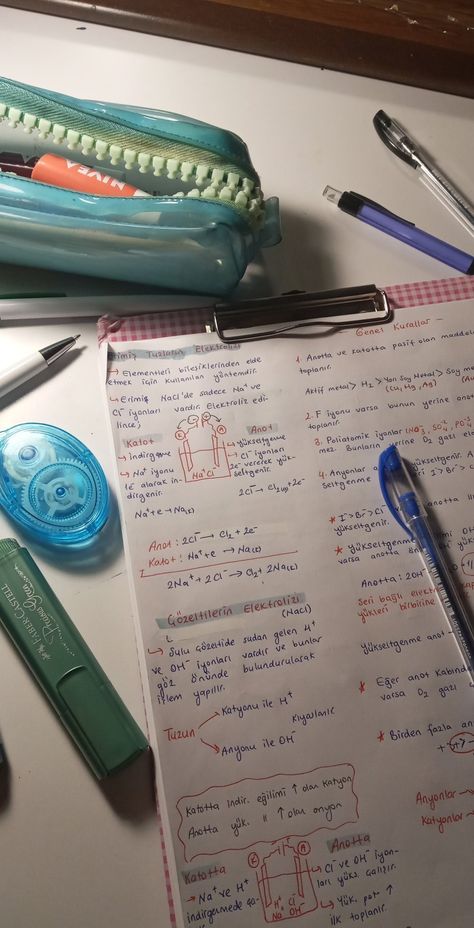 NIVEA
FABER CASTELL
Erimiş Tuzların Elektrolizi
→ Elementleri bileşiklerinden elde
etmek için kullanılan yöntemdir.
→ Erimiş NaCl'de sadece Na⁺ ve
Cl⁻ iyonları vardır. Elektroliz edi-
lince;
Katot
→ indirgenme
→ Na⁺ iyonu
1e⁻ alarak in-
dirgenir.
Na⁺+e⁻→Na
K
A
Na⁺Cl⁻
Anot
→ yükseltgenme
→ Cl⁻ iyonları
2e⁻ vererek yük-
seltgenir.
2Cl⁻→Cl₂(g)+2e⁻
Anot : 2Cl⁻→Cl₂ + 2e⁻
Katot: Na⁺+e⁻ → Na(k)
2Na⁺ + 2Cl⁻ → Cl₂ + 2Na(k)
Çözeltilerin Elektrolizi
(NaCl)
→ Sulu çözeltide sudan gelen H⁺
ve OH⁻ iyonları vardır ve bunlar
göz önünde bulundurularak
işlem yapılır.
Tuzun
Katyonu ile H⁺
Kıyaslanır
Anyonu ile OH⁻
Katotta indir. eğilimi ↑ olan katyon
Anotta yük. " ↑ olan anyon
Katotta
→ Na⁺ ve H⁺
indirgenmede ça-
K
A
H⁺ Cl⁻
Na⁺ OH⁻
Anotta
→ Cl⁻ ve OH⁻ iyon-
ları yüks. çalışır.
→ Yük. pot ↑
ilk toplanır.
- Genel Kurallar -
1. Anotta ve katotta pasif olan
toplanır.
Aktif metal > H₂ > Yarı Soy Metal > Soy
(Cu, Hg, Ag)
2. F⁻ iyonu varsa bunun yerine
toplanır.
3. Poliatomik iyonlar
mez. Bunların yerine O₂ gazı
4. Anyonlar
yükseltgenir.
seltgenme
I⁻ > Br⁻
* I⁻ > Br⁻ > Cl⁻
yükseltgenir.
* Yükseltgenme
varsa anotta
Anotta : 2OH⁻
Seri bağlı
yükleri birbirine
yükseltgenme anot
* Eğer anot
varsa O₂ gazı
* Birden fazla
Anyonlar →
Katyonlar →